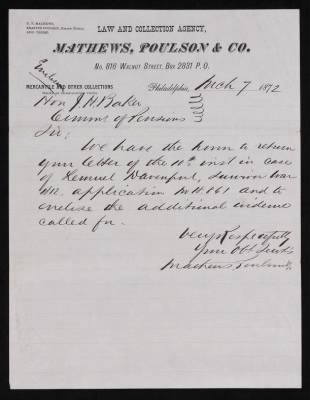 LAW AND COLLECTION AGENCY,
MATHEWS, POULSON & CO.
No. 816 WALNUT STREET. BOX 2631 P. O.
MERCANTILE AND OTHER COLLECTIONS
Philadelphia, Mch 7 1872
Hon J. H. Baker
Commr of Pensions
Sir;
We have the honor to return
your letter of the 10th inst in case
of Lemuel Davenport, Survivor War
1812. application No 11.661 and to
enclose the additional evidence
called for.
Very Respectfully
Your Obt Servts
Mathews Poulson & Co